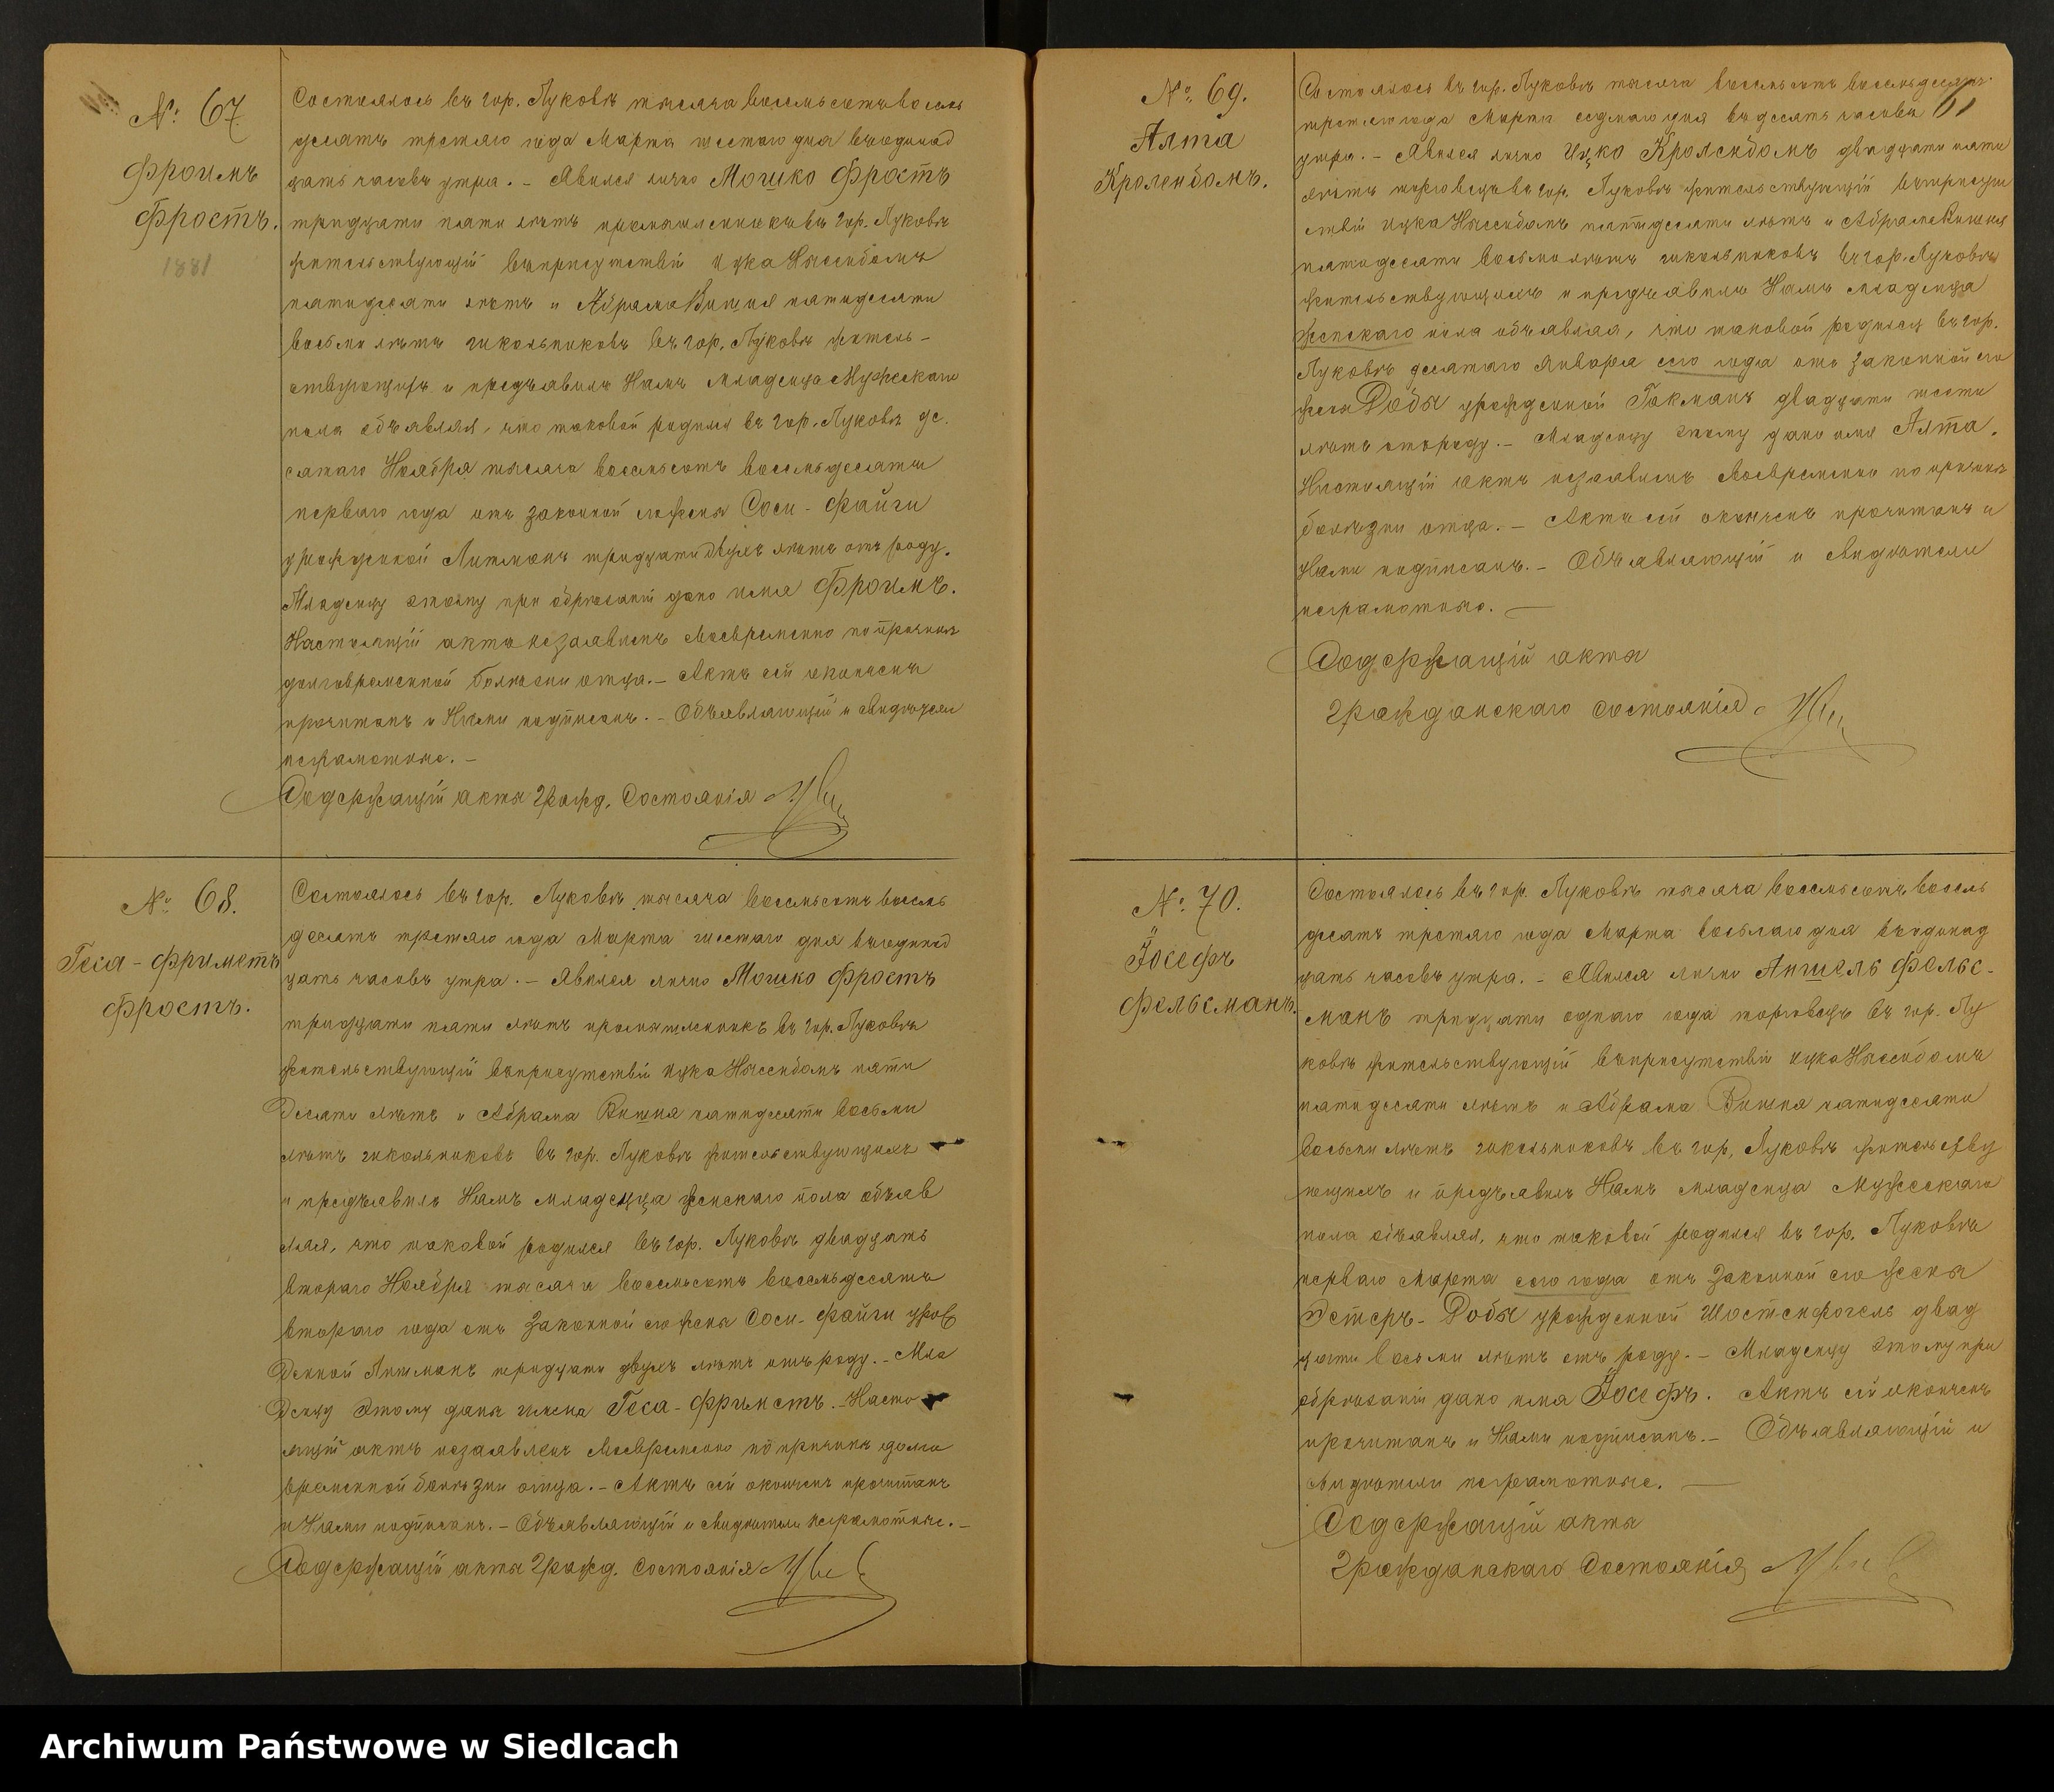 № 67
Фроимъ
Фростъ.
1881
Состоялось въ гор. Луковѣ тысяча восемьсотъ восемь
десятъ третьяго года Марта шестаго дня въ одинад
цать часовъ утра. – Явился лично Мошко Фростъ
тридцати пяти лѣтъ промышленникъ въ гор. Луковѣ
жительствующій въ присутствіи Ицка Ниссенбомъ
пятидесяти лѣтъ и Абрама Вишня пятидесяти
восьми лѣтъ школьниковъ въ гор. Луковѣ житель-
ствующихъ и предъявилъ Намъ младенца Мужескаго
пола объявляя, что таковой родился въ гор. Луковѣ де.
сятаго Ноября тысяча восемьсотъ восемьдесятъ
перваго года отъ законной его жены Соси - Файги
урожденной Литманъ тридцати двухъ лѣтъ отъ роду.
Младенцу этому при обрѣзаніи дано имя Фроимъ.
Настоящій актъ незаявленъ своевременно по причинѣ
долговременной болѣзни отца. – Актъ сей оконченъ
прочитанъ и Нами подписанъ. – Объявляющій и свидѣтели
неграмотные. –
Содержащій акты Гражд. Состоянія
№ 68.
Геса - Фриметъ
Фростъ.
Состоялось въ гор. Луковѣ тысяча восемьсотъ восемь
десятъ третьяго года Марта шестаго дня въ одинад
цать часовъ утра. – Явился лично Мошко Фростъ
тридцати пяти лѣтъ промышленникъ въ гор. Луковѣ
жительствующій въ присутствіи Ицка Ниссенбомъ пяти
десяти лѣтъ и Абрама Вишня пятидесяти восьми
лѣтъ школьниковъ въ гор. Луковѣ жительствующихъ
и предъявилъ Намъ младенца женскаго пола объяв
ляя, что таковой родился въ гор. Луковѣ двадцать
втораго Ноября тысяча восемьсотъ восемьдесятъ
втораго года отъ законной его жены Соси - Файги урож
денной Литманъ тридцати двухъ лѣтъ отъ роду. – Мла
денцу этому даны имена Геса - Фриметъ. – Насто
ящій актъ незаявленъ своевременно по причинѣ долго
временной болѣзни отца. – Актъ сей оконченъ прочитанъ
и Нами подписанъ. – Объявляющій и свидѣтели неграмотные. –
Содержащій акты Гражд. Состоянія
№ 69.
Алта
Кроленбомъ.
Состоялось въ гор. Луковѣ тысяча восемьсотъ восемьдесятъ
третьяго года Марта седмаго дня въ десять часовъ
утра. – Явился лично Ицко Кроленбомъ двадцати пяти
лѣтъ торговецъ въ гор. Луковѣ жительствующій въ присут
ствіи Ицка Ниссенбомъ пятидесяти лѣтъ и Абрама Вишня
пятидесяти восьми лѣтъ школьниковъ въ гор. Луковѣ
жительствующихъ и предъявилъ Намъ младенца
женскаго пола объявляя, что таковой родился въ гор.
Луковѣ десятаго Января сего года отъ законной его
жены Добы урожденной Гокманъ двадцати шести
лѣтъ отъ роду. – Младенцу этому дано имя Алта.
Настоящій актъ незаявленъ своевременно по причинѣ
болѣзни отца. – Актъ сей оконченъ прочитанъ и
Нами подписанъ. – Объявляющій и свидѣтели
неграмотные. –
Содержащій акты
Гражданскаго Состоянія
№ 70.
Іосефъ
Фельсманъ.
Состоялось въ гор. Луковѣ тысяча восемьсотъ восемь
десятъ третьяго года Марта восьмаго дня въ одинад
цать часовъ утра. – Явился лично Аншель Фельс-
манъ тридцати одного года торговецъ въ гор. Лу
ковѣ жительствующій въ присутствіи Ицка Ниссенбомъ
пятидесяти лѣтъ и Абрама Вишня пятидесяти
восьми лѣтъ школьниковъ въ гор. Луковѣ жительству
ющихъ и предъявилъ Намъ младенца Мужескаго
пола объявляя, что таковой родился въ гор. Луковѣ
перваго Марта сего года отъ законной его жены
Эстеръ - Добы урожденной двад
цати восьми лѣтъ отъ роду. – Младенцу этому при
обрѣзаніи дано имя Іосефъ. Актъ сей оконченъ
прочитанъ и Нами подписанъ. – Объявляющій и
свидѣтели неграмотные. –
Содержащій акты
Гражданскаго Состоянія
Archiwum Państwowe w Siedlcach